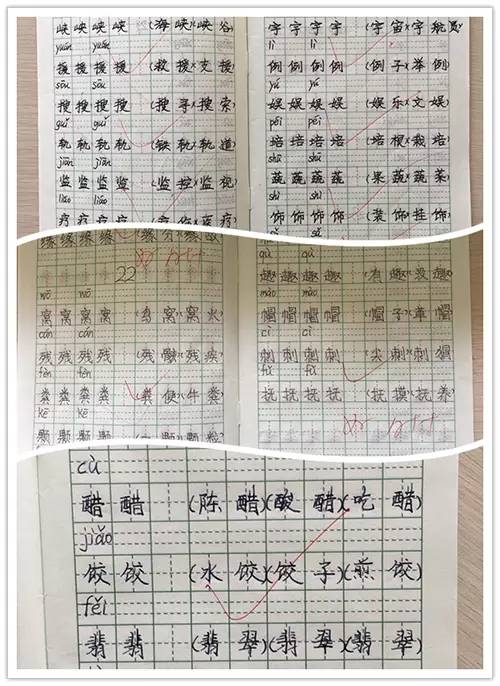 峡 峡 峡 峡 (海 峡)(峡 谷)
yuán yuán
援 援 援 援 (救 援)(支 援)
sōu sōu
搜 搜 搜 搜 (搜 寻)(搜 索)
guǐ guǐ
轨 轨 轨 轨 (铁 轨)(轨 道)
jiān jiān
监 监 监 监 (监 控)(监 视)
liáo liáo
疗 疗 疗 疗
宇 宇 宇 宇 (宇 宙)(宇 航员)
lì lì
例 例 例 例 (例 子)(举 例)
yú yú
娱 娱 娱 娱 (娱 乐)(文 娱)
péi péi
培 培 培 培 (培 根)(栽 培)
shū shū
蔬 蔬 蔬 蔬 (果 蔬)(蔬 菜)
shì shì
饰 饰 饰 饰 (装 饰)(挂 饰)
22
wō wō
窝 窝 窝 窝 (鸟 窝)(窝 火)
cán cán
残 残 残 残 (残 酷)(残 疾)
fèn fèn
粪 粪 粪 粪 (粪 便)(牛 粪)
kē kē
颗 颗 颗 颗
qù qù
趣 趣 趣 趣 (有 趣)(没 趣)
mào mào
帽 帽 帽 帽 (帽 子)(草 帽)
cì cì
刺 刺 刺 刺 (尖 刺)(刺 猬)
fǔ fǔ
抚 抚 抚 抚 (抚 摸)(抚 养)
cù
醋 醋 (陈 醋)(酸 醋)(吃 醋)
jiǎo
饺 饺 (水 饺)(饺 子)(煎 饺)
fěi
翡 翡 (翡 翠)(翡 翠)(翡 翠)